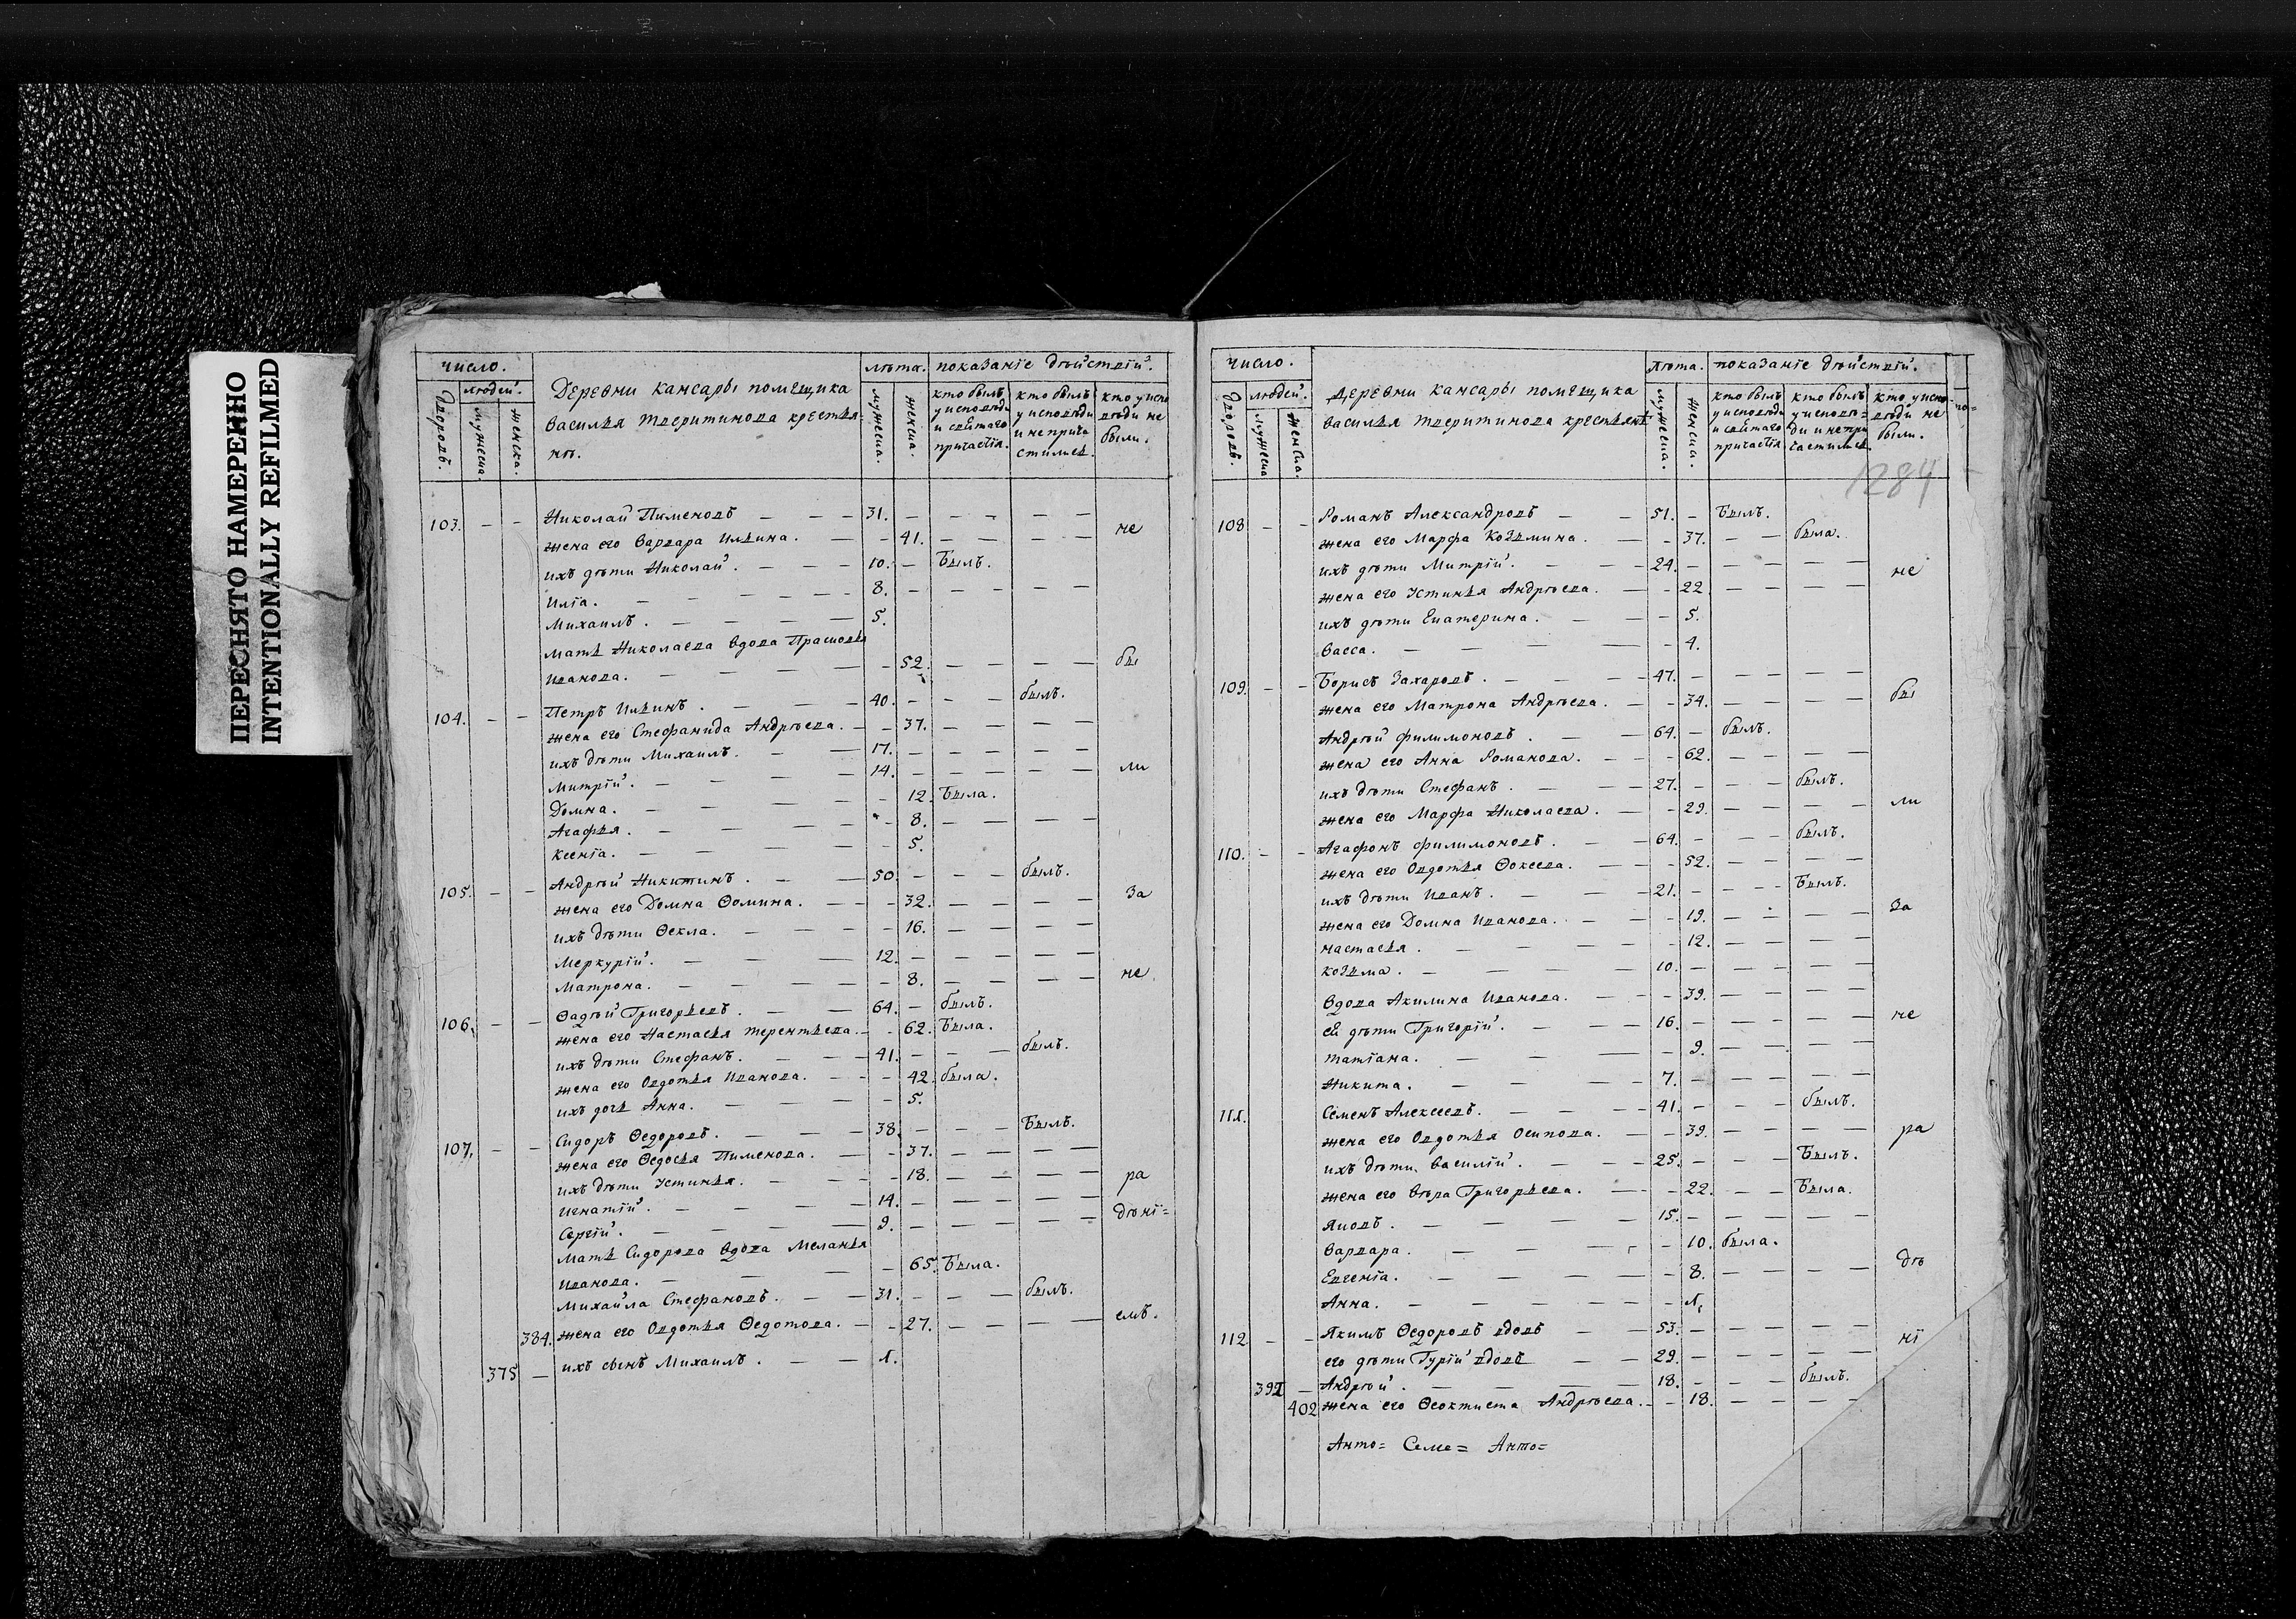 ПЕРЕСНЯТО НАМЕРЕННО
INTENTIONALLY REFILMED
число. лѣта. показанїе дѣйствїй.
людей.
дворовъ. мужеска. женска.
Деревни кансары помѣщика
василья тверитинова крестья-
нъ.
мужеска. женска.
кто былъ у исповѣди и святаго причастїя.
кто былъ у исповѣди и не причастился.
кто у исповѣди не были.
103. – – Николай Пименовъ – – – 31. – – – – –
жена его Варвара Ильина. – – 41. – – – – не
ихъ дѣти Николай. – – – 10. – Былъ.
Илїа. – – – – – 8. – – – – –
Михаилъ. – – – – 5.
Мать Николаева вдова Прасковья
Иванова. – – – – – 52. – – – – бы
104. – – Петръ Ильинъ. – – – 40. – – – былъ.
жена его Стефанида Андрѣева. – – 37. – – – –
ихъ дѣти Михаилъ. – – 17. – – – – –
Митрїй. – – – – 14. – – – – – ли
Домна. – – – – – 12. Была.
Агафья. – – – – – 8. – – – –
Ксенїа. – – – – – 5.
105. – – Андрѣй Никитинъ. – – 50. – – – былъ.
жена его Домна Ѳомина. – – – 32. – – – – За
ихъ дѣти Ѳекла. – – – – 16. – – – –
Меркурїй. – – – 12. – – – – –
Матрона. – – – – – 8. – – – – не
106. – – Ѳадѣй Григорьевъ. – – – 64. – былъ.
жена его Настасья терентьева. – – 62. Была.
ихъ дѣти Стефанъ. – – – 41. – – – былъ.
жена его Овдотья Иванова. – – – 42. была.
ихъ дочь Анна. – – – – 5.
107. – – Сидоръ Ѳедоровъ. – – – 38. – – – Былъ.
жена его Ѳедосья Пименова. – – 37. – – – –
ихъ дѣти Устинья. – – – – 18. – – – – ра
Игнатїй. – – – – 14. – – – – –
Сергїй. – – – – – 9. – – – – – дѣнї=
Мать Сидорова вдова Меланья
Иванова. – – – – 65. Была.
Михайла Стефановъ. – – – 31. – – – былъ.
384. жена его Овдотья Ѳедотова. – – 27. – – – – емъ.
375 – ихъ сынъ Михаилъ. – – – 1.
число. лѣта. показанїе дѣйствїй.
людей.
дворовъ. мужеска женска.
Деревни кансары помѣщика
василья тверитинова крестьянъ
мужеска. женска.
кто былъ у исповѣди и святаго причастїя
кто былъ у исповѣ= ди и не причастился.
кто у исповѣди не были.
1284
108 – – Романъ Александровъ – – 51. – Былъ.
жена его Марфа Козьмина. – – 37. – – была.
ихъ дѣти Митрїй. – – – 24. – – – – – не
жена его Устинья Андрѣева. – – 22 – – –
ихъ дѣти Екатерина. – – – 5.
Васса. – – – – – 4.
109. – – Борисъ Захаровъ. – – – 47. – – – – –
жена его Матрона Андрѣева. – – 34. – – – – бы
Андрѣй филимоновъ. – – 64. – былъ.
жена его Анна Романова. – – – 62. – – – –
ихъ дѣти Стефанъ. – – – 27. – – – былъ.
жена его Марфа Николаева. – – 29. – – – – ли
110. – – Агафонъ филимоновъ. – – 64. – – – былъ.
жена его Овдотья Ѳокеева. – – – 52. – – – –
ихъ дѣти Иванъ. – – – 21. – – – Былъ.
жена его Домна Иванова. – – – 19. – – – – За
настасья. – – – – – 12. – – – –
козьма. – – – – – 10. – – – – –
вдова Акилина Иванова. – – – 39. – – – –
ей дѣти Григорїй. – – – 16. – – – – – не
татїана. – – – – 9. – – – –
Никита. – – – – 7. – – – – –
111. Семенъ Алексеевъ. – – – – 41. – – – былъ.
жена его Овдотья Осипова. – – 39. – – – – ра
ихъ дѣти Василїй. – – – 25. – – – Былъ.
жена его Вѣра Григорьева. – – 22. – – Была.
Яковъ. – – – – – 15. – – – – –
Варвара. – – – – – 10. была.
Евгенїа. – – – – – 8. – – – – дѣ
Анна. – – – – – – 1.
112 – – Якимъ Ѳедоровъ вдовъ – – 53. – – – – –
его дѣти Гурїй вдовъ – – 29. – – – – – нї
391 – Андрѣй. – – – – 18. – – – былъ.
402 жена его Ѳеоктиста Андрѣева. – – 18. – – – –
Анто= Семе= Анто=